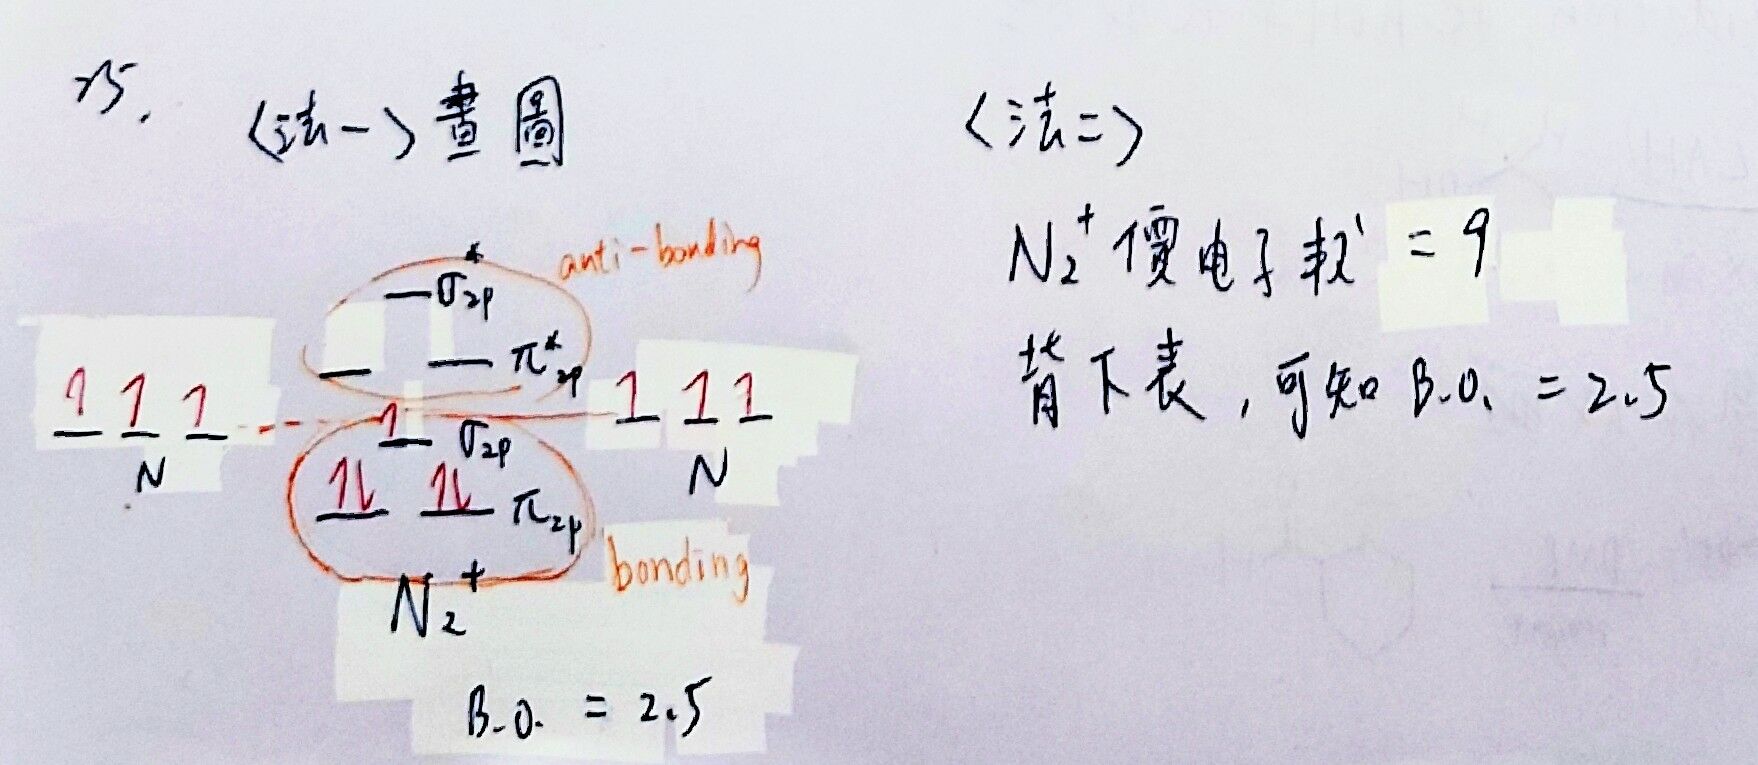 25.
<法一> 畫圖
σ*2p
anti-bonding
π*2p
1 1 1
1
1 1 1
N
σ2p
N
1l 1l π2p
bonding
N2+
B.O. = 2.5
<法二>
N2+ 價电子数 = 9
背下表,可知 B.O. = 2.5